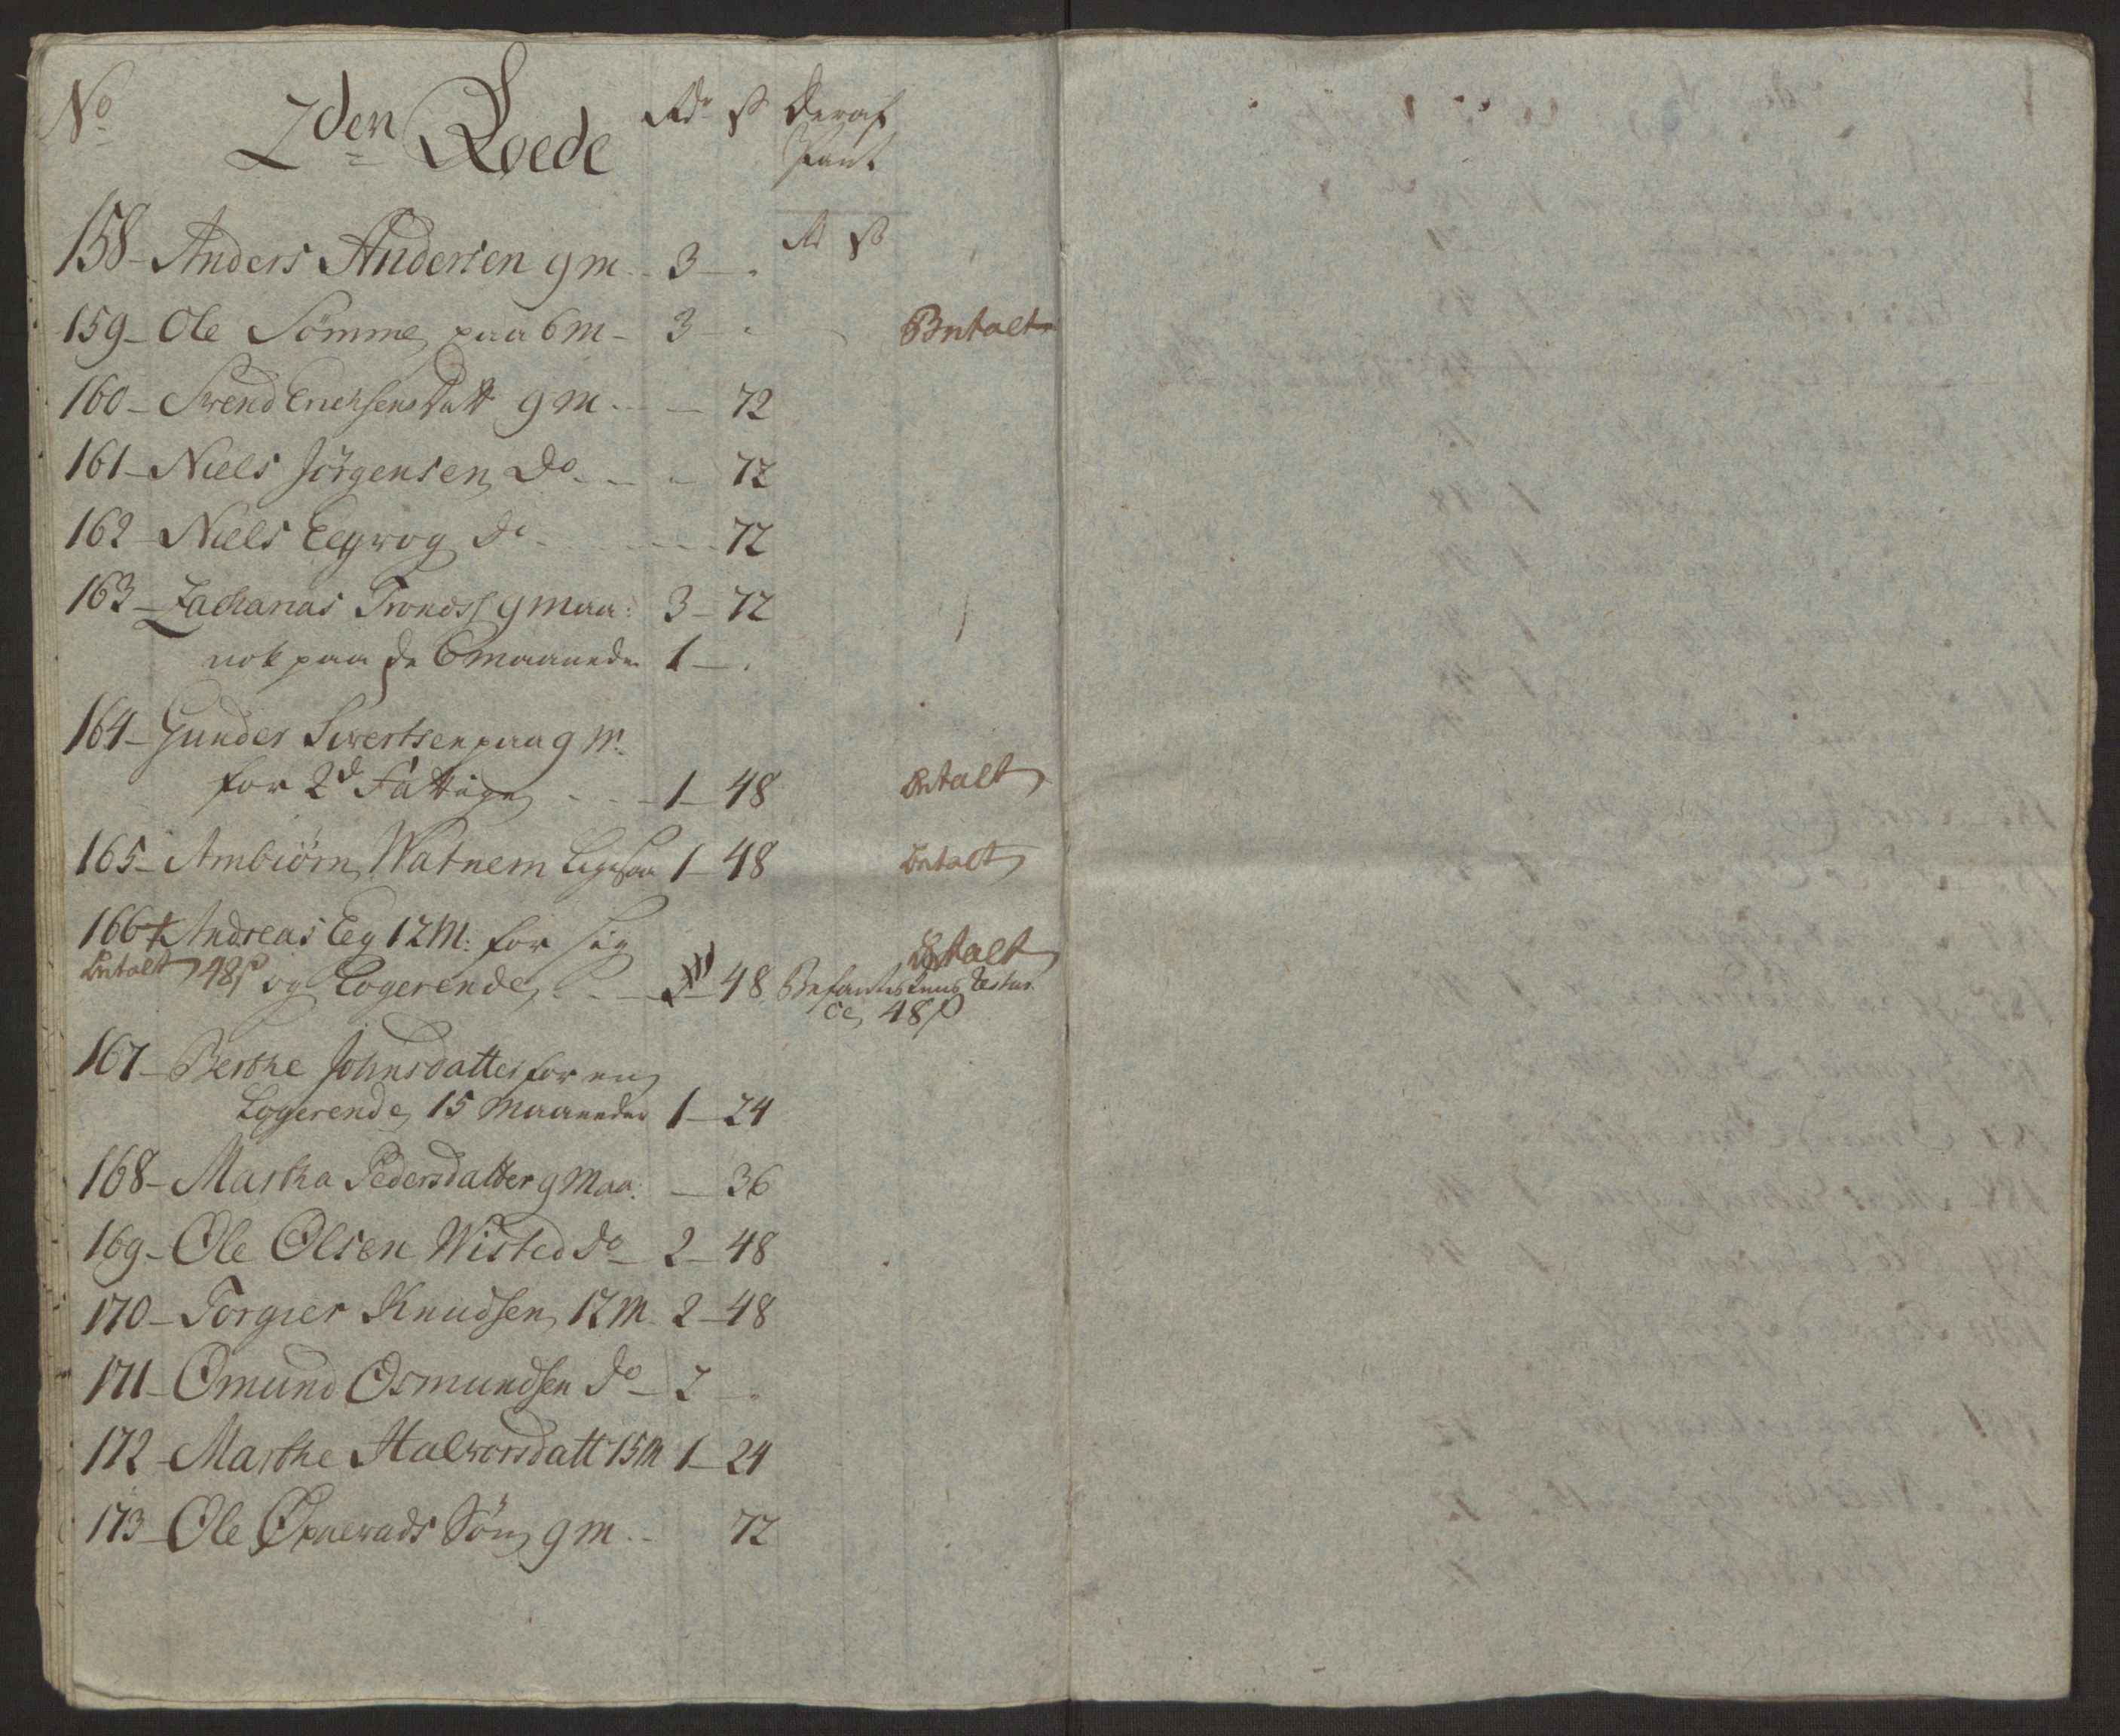 No 2den Roede Rdr ß Deraf
Pant
Rd ß
158 - Anders Andersen 9 m - 3 - .
159 - Ole Sömme paa 6 m - 3 - . Betalt
160 - Svend Erichsens datt 9 m - - 72
161 - Niels Jörgensen do - - - 72
162 - Niels Do - - - 72
163 - Zacharias Trondss 9 maa: 3 - 72
nok paa de 6 maaneder 1 - .
164 - Gunder Sivertsen paa 9 m:
for 2de Fattige - - - 1 - 48 Betalt
165 - Ambiörn Watnem Ligesaa 1 - 48 Betalt
166 + Andreas Eeg 12 M: for sig Betalt
Betalt 48ß og Logerende - - 48 Resterer
48ß
167 - Berthe Johnsdatter for en
Logerende 15 Maaneder 1 - 24
168 - Martha Pedersdatter 9 Maa: - 36
169 - Ole Olsen Wisted do - 2 - 48
170 - Torgier Knudsen 12 M 2 - 48
171 - Omund Osmundsen do - 2 - .
172 - Marthe Halvorsdatt 15 M 1 - 24
173 - Ole Sön 9 m - - 72